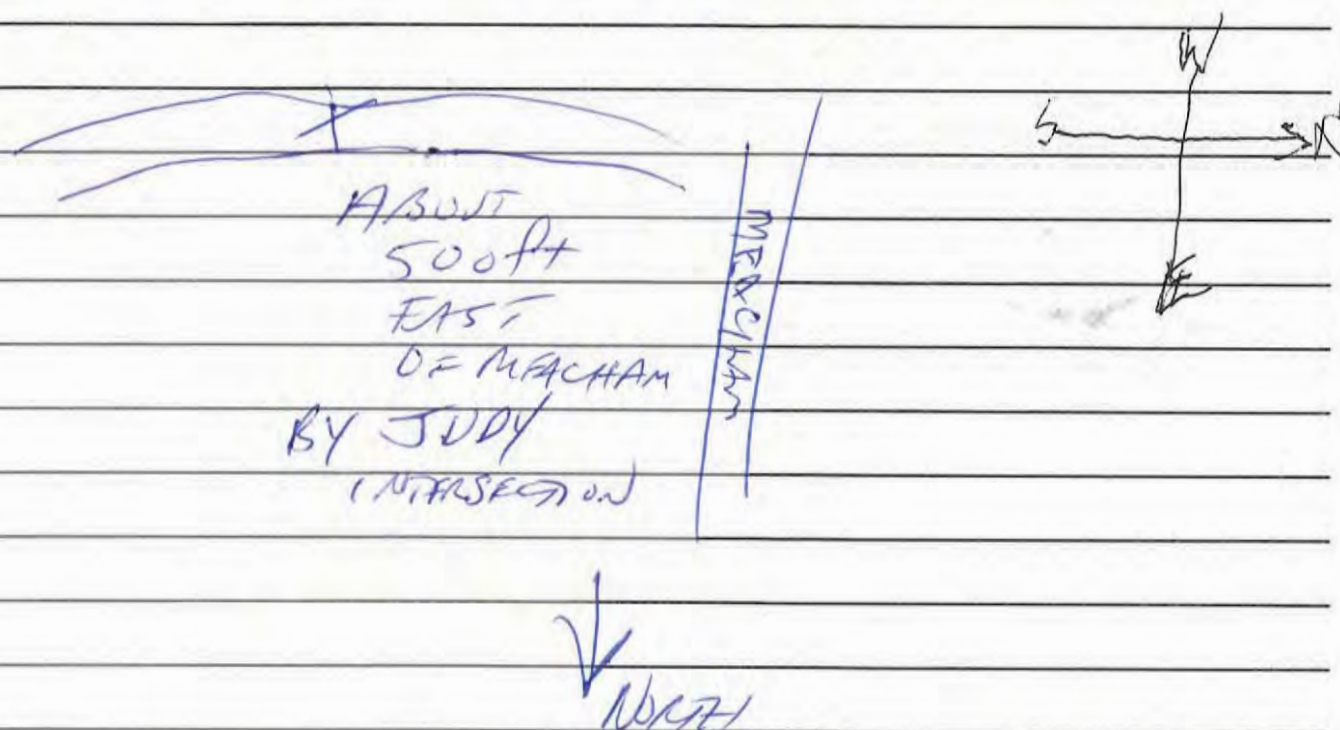 W
S N
E
ABOUT
500ft
EAST
OF MEACHAM
BY JUDY
INTERSECTION
MEACHAM
NORTH